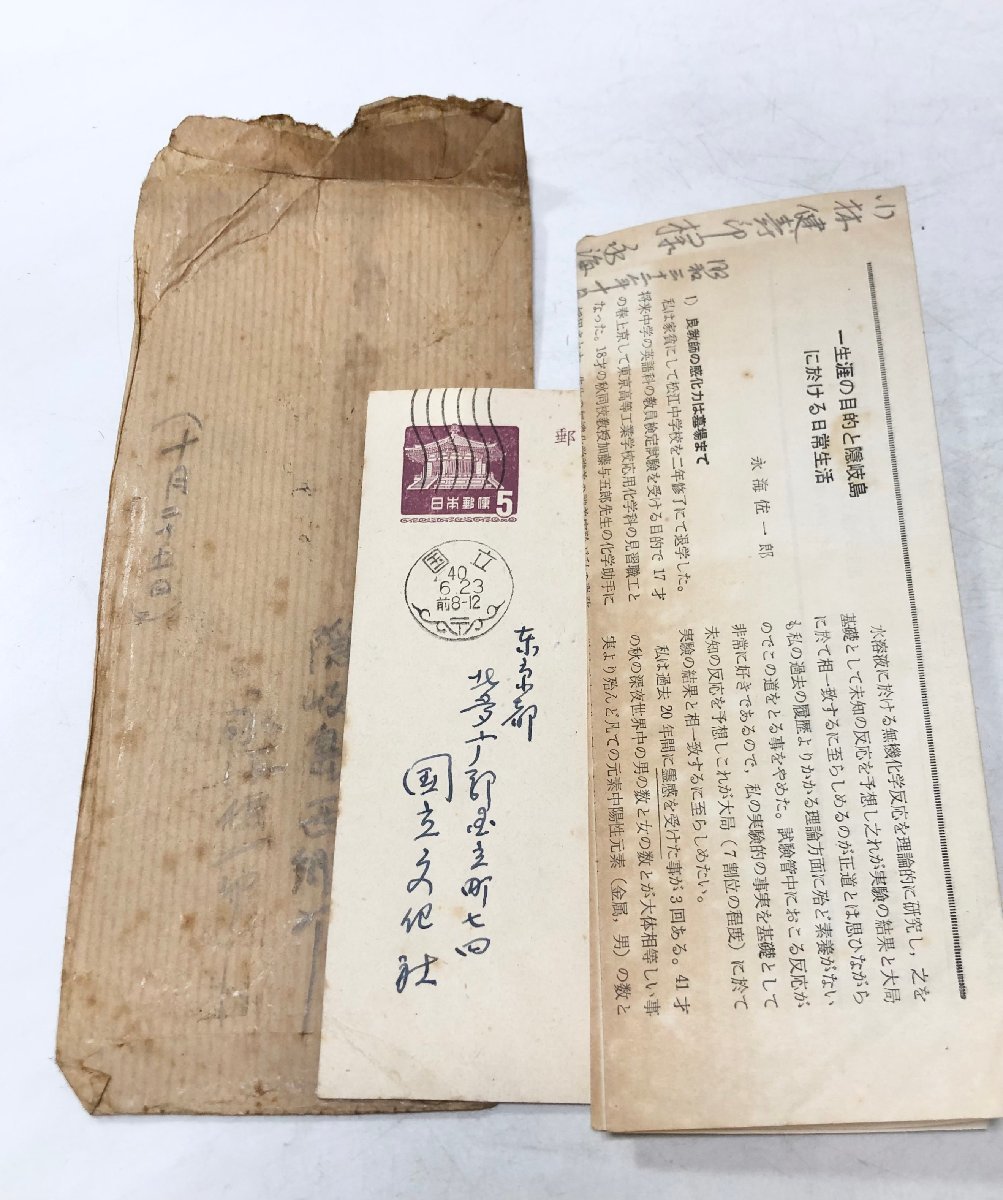 (十月二十五日)
郵
日本郵便 5
国立
40
6.23
前8-12
東京都
北多十郡国立町七四
国立文化社
小林健寿郎様
昭和三十二年十
永海
一生涯の目的と隠岐島
に於ける日常生活
永海佐一郎
1) 良教師の感化力は墓場まで
私は家貧にして松江中学校を二年修了にて退学した。
将来中学の英語科の教員検定試験を受ける目的で17才
の春上京して東京高等工業学校応用化学科の見習職工と
なった。18才の秋同校教授加藤与五郎先生の化学助手に
水溶液に於ける無機化学反応を理論的に研究し，之を
基礎として未知の反応を予想し之れが実験の結果と大局
に於て相一致するに至らしめるのが正道とは思ひながら
も私の過去の履歴よりかかる理論方面に殆ど素養がない
のでこの道をとる事をやめた。試験管中におこる反応が
非常に好きであるので，私の実験的の事実を基礎として
未知の反応を予想しこれが大局（7割位の程度）に於て
実験の結果と相一致するに至らしめたい。
私は過去20年間に霊感を受けた事が3回ある。41才
の秋の深夜世界中の男の数と女の数とが大体相等しい事
実より殆んど凡ての元素中陽性元素（金属，男）の数と